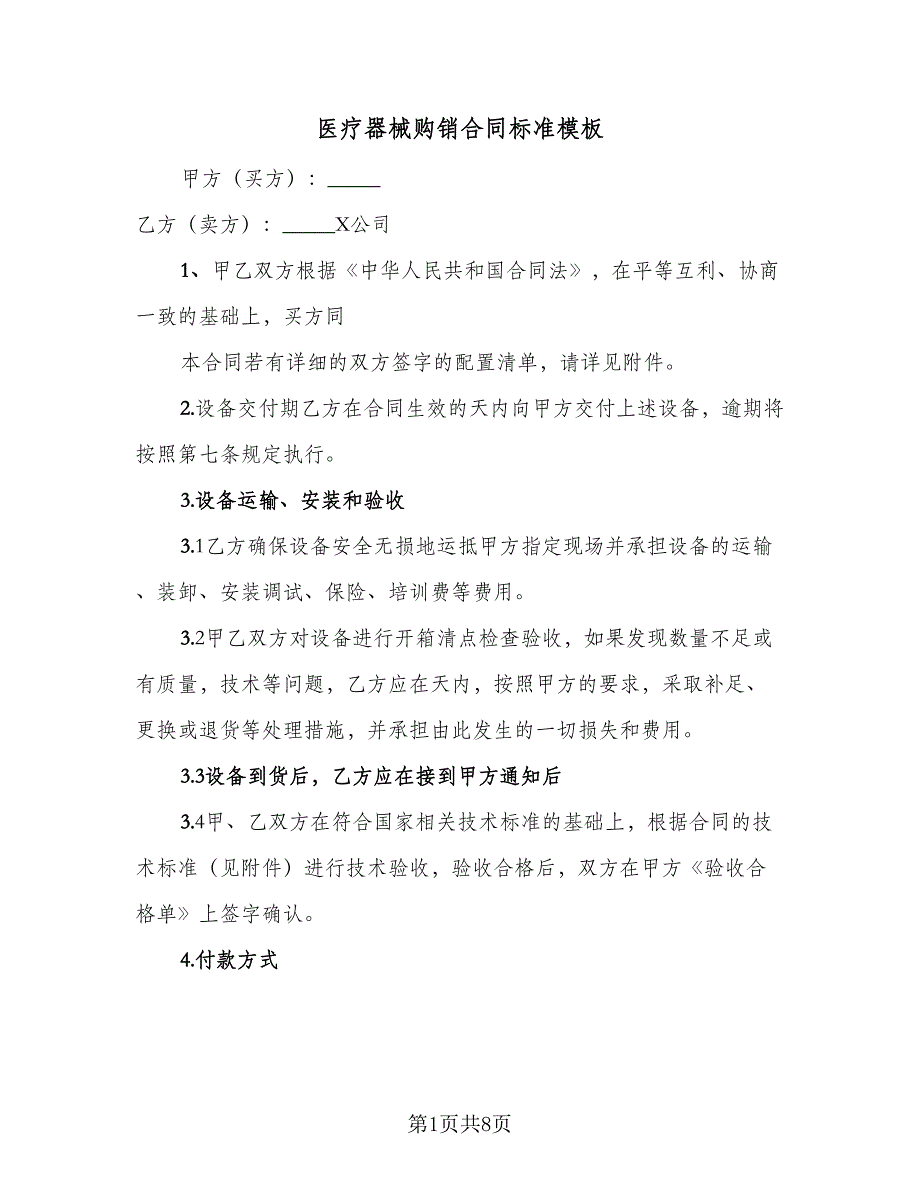 医疗器械购销合同标准模板
甲方（买方）：_____
乙方（卖方）：_____X公司
1、甲乙双方根据《中华人民共和国合同法》，在平等互利、协商
一致的基础上，买方同
本合同若有详细的双方签字的配置清单，请详见附件。
2.设备交付期乙方在合同生效的天内向甲方交付上述设备，逾期将
按照第七条规定执行。
3.设备运输、安装和验收
3.1乙方确保设备安全无损地运抵甲方指定现场并承担设备的运输
、装卸、安装调试、保险、培训费等费用。
3.2甲乙双方对设备进行开箱清点检查验收，如果发现数量不足或
有质量，技术等问题，乙方应在天内，按照甲方的要求，采取补足、
更换或退货等处理措施，并承担由此发生的一切损失和费用。
3.3设备到货后，乙方应在接到甲方通知后
3.4甲、乙双方在符合国家相关技术标准的基础上，根据合同的技
术标准（见附件）进行技术验收，验收合格后，双方在甲方《验收合
格单》上签字确认。
4.付款方式
第1页共8页